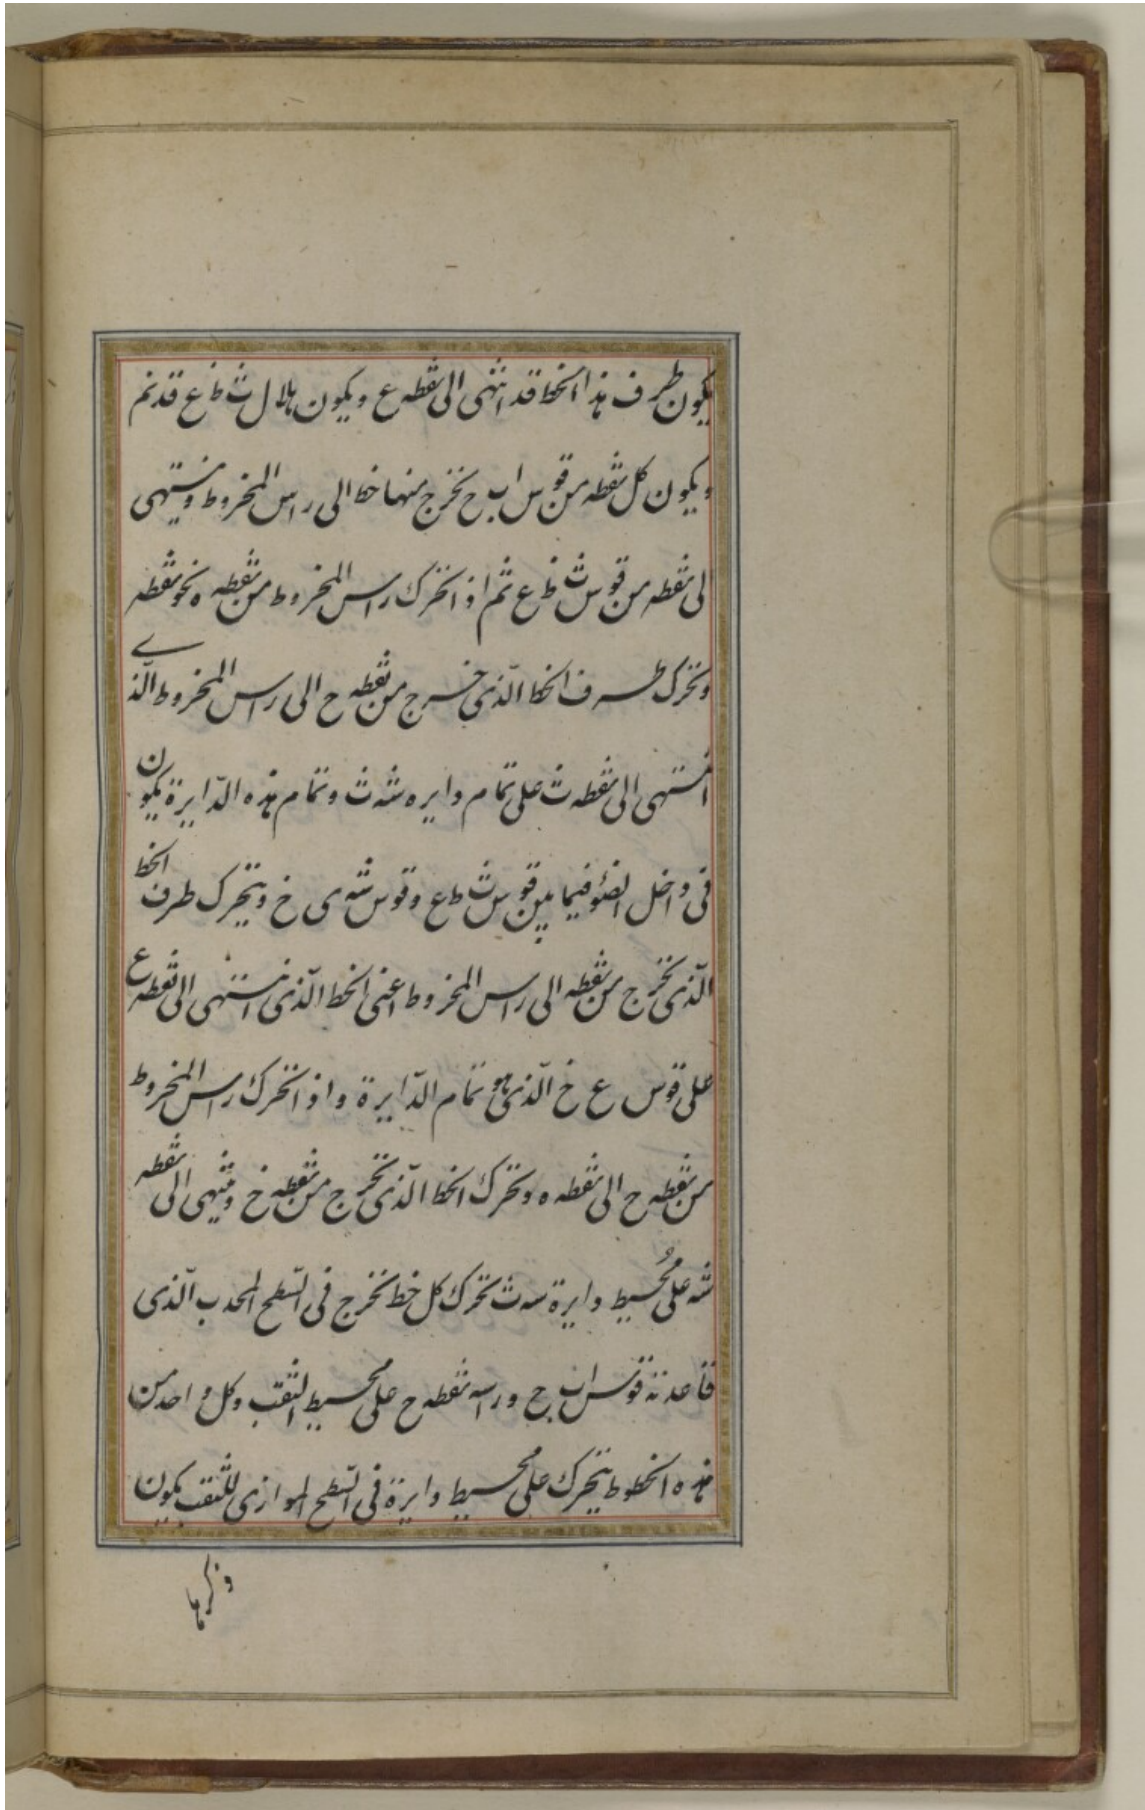 يكون طرف هذا الخط قد انتهى الى نقطه ع ويكون هلال ث ط ع قد تم
ويكون كل نقطه من قوس اب ج يخرج منها خط الى راس المخروط وينتهى
الى نقطه من قوس ث ط ع ثم اذا تحرك راس المخروط من نقطه ه نحو نقطه
وتحرك طرف الخط الّذى خرج من نقطه ح الى راس المخروط الّذي
انتهى الى نقطه ث على تمام دايره شه ث وتمام هذه الدّايرة يكون
فى داخل الضوء فيما بين قوس ث ط ع وقوس شه ى خ ويتحرك طرف الخط
الّذى يخرج من نقطه الى راس المخروط اعنى الخط الّذى انتهى الى نقطه ع
على قوس ع خ الّذى هو تمام الدّايرة واذا تحرك راس المخروط
من نقطه ح الى نقطه ه وتحرك الخط الّذى يخرج من نقطه خ وينتهى الى نقطه
شه على مُحيط دايرة سه ث تحرك كل خط يخرج فى السّطح المحدب الّذى
قاعدته قوس اب ج وراسه نقطه ح على محيط الثقب وكل واحد من
هذه الخطوط يتحرك على محيط دايرة فى السّطح الموازى للثقب يكون